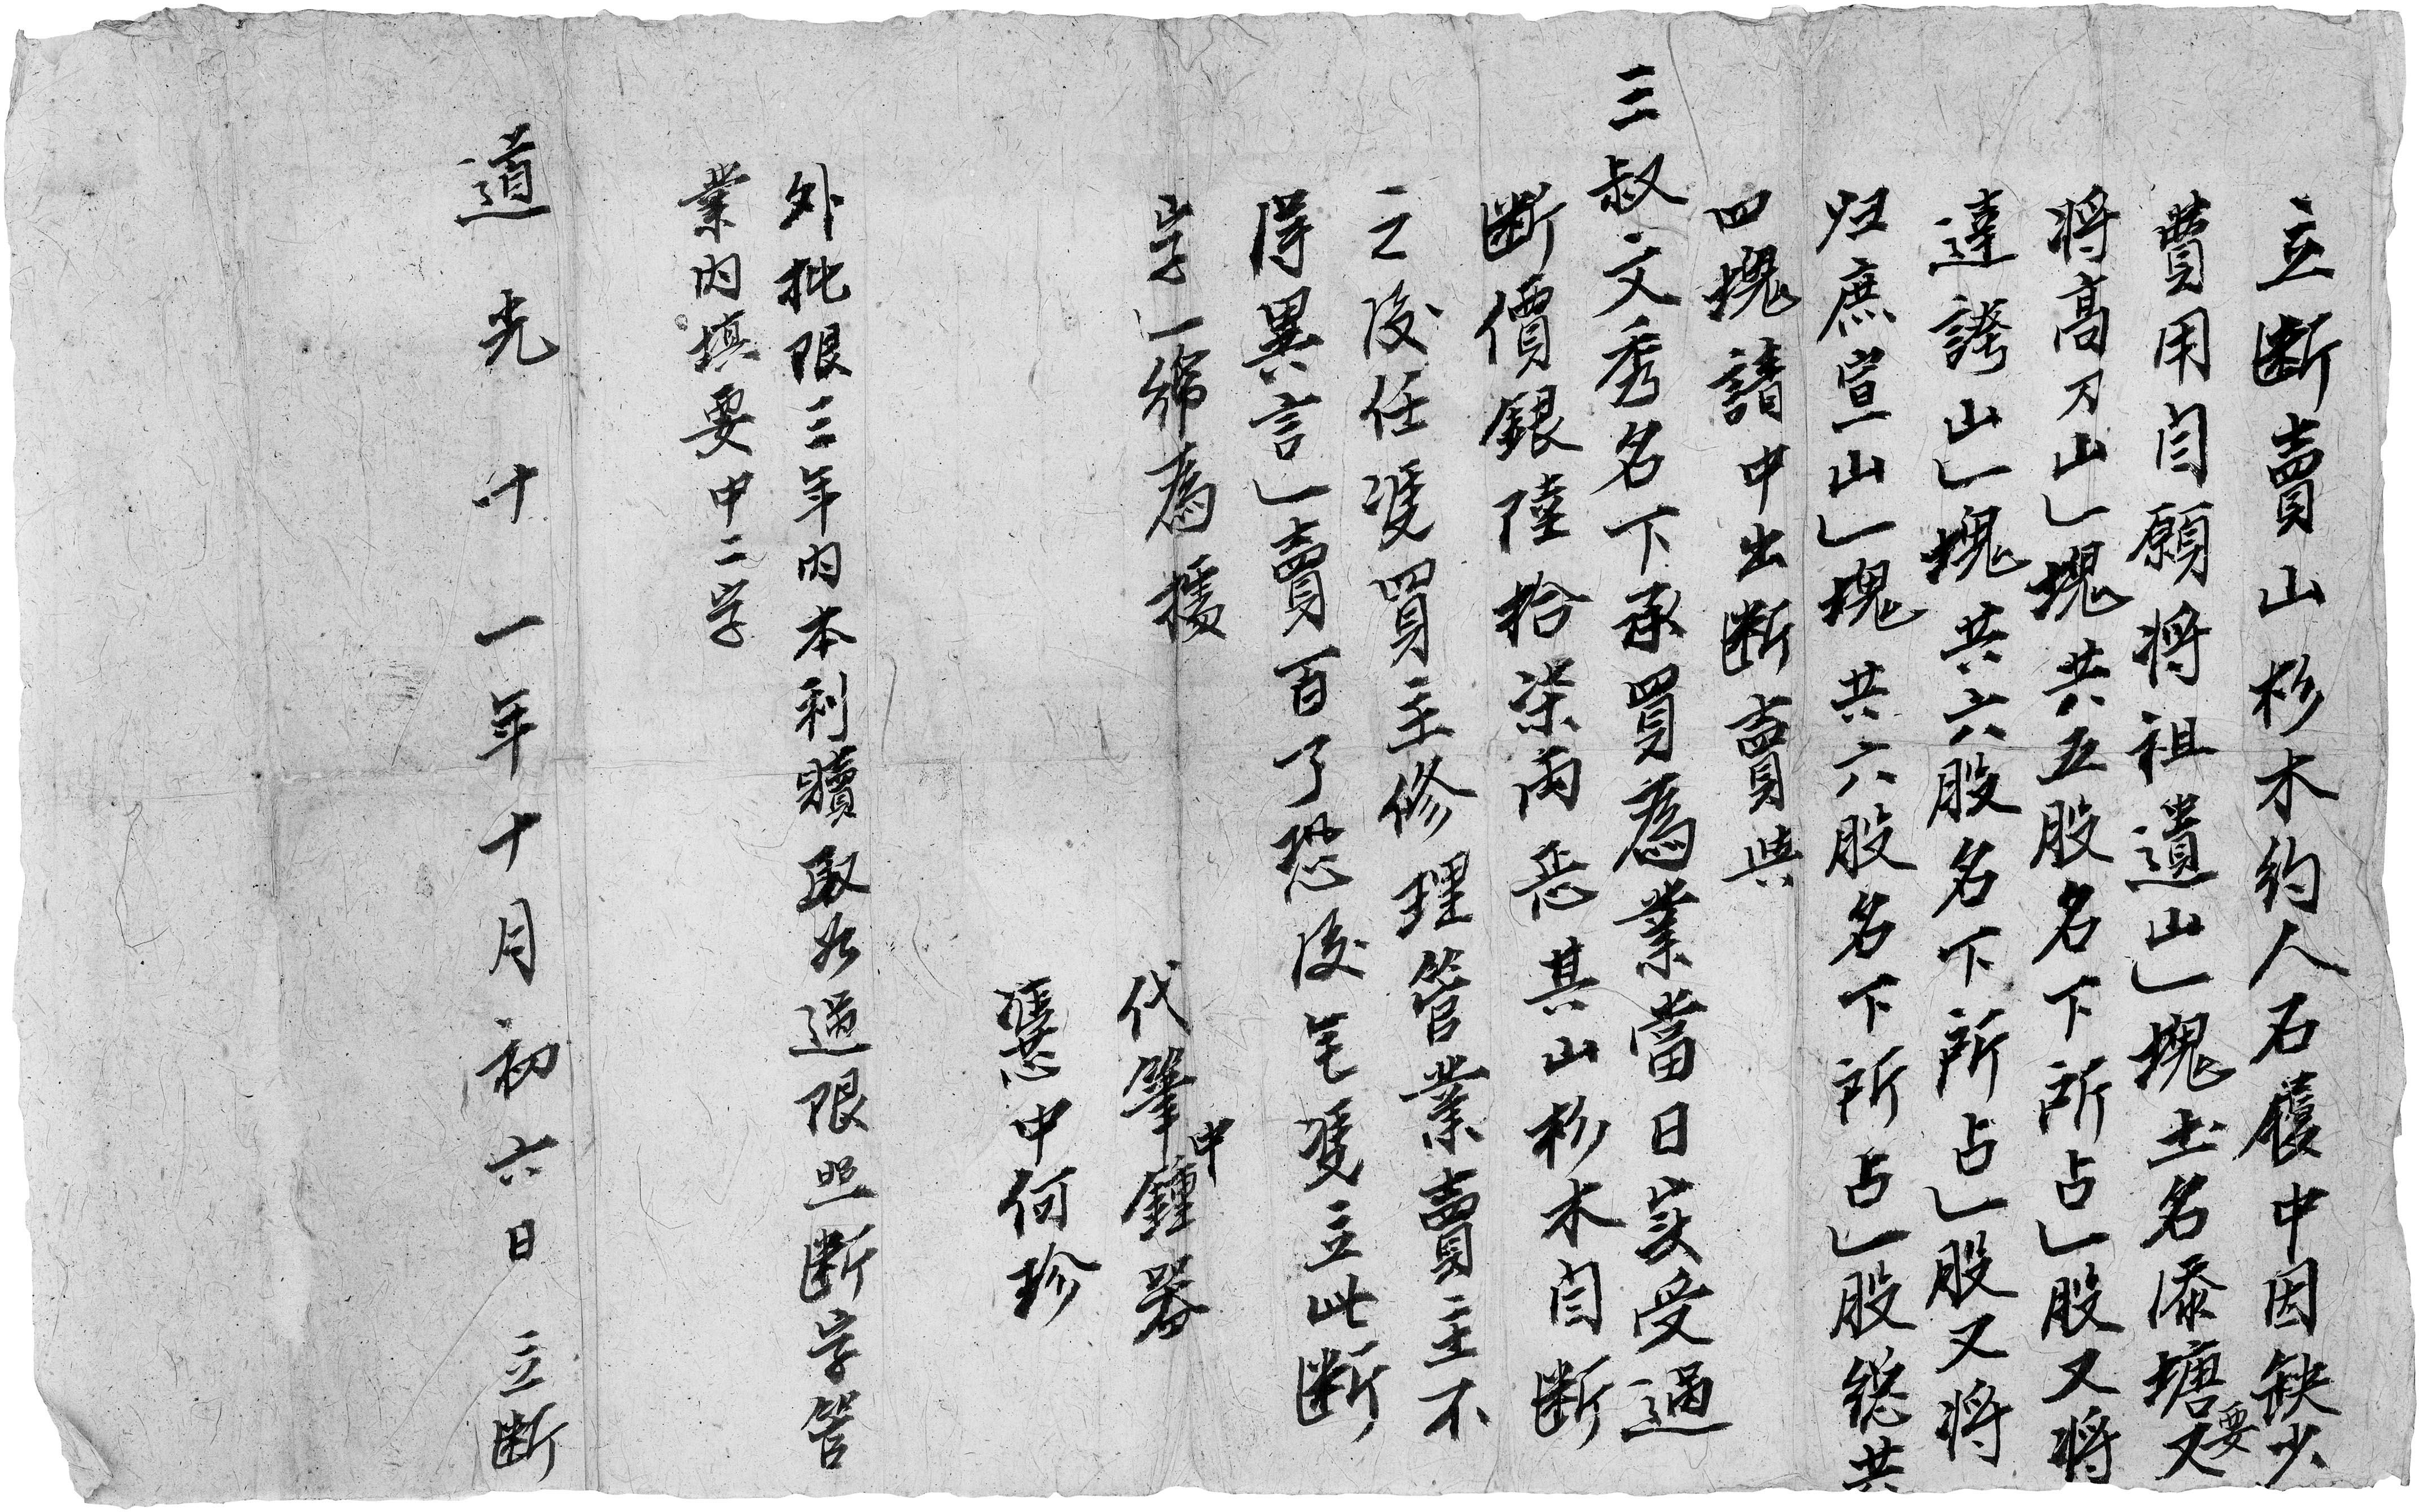 立断賣山杉木約人石農中因缺少
費用自願將祖遺山一塊土名添塘要又
將高刀山一塊共五股名下所占一股又將
達誇山一塊共六股名下所占一股又將
归庶宣山一塊共六股名下所占一股総共
四塊請中出断賣與
三叔文秀名下承買為業當日实受過
断價銀陸拾柒両悉其山杉木自断
之後任凴買主修理管業賣主不
得異言一賣百了恐後無凴立此断
字一帋為據
代筆中鍾器
憑中何珍
外批限三年内本利贖取如過限照断字管
業内填要中二字
道光十一年十月初六日立断